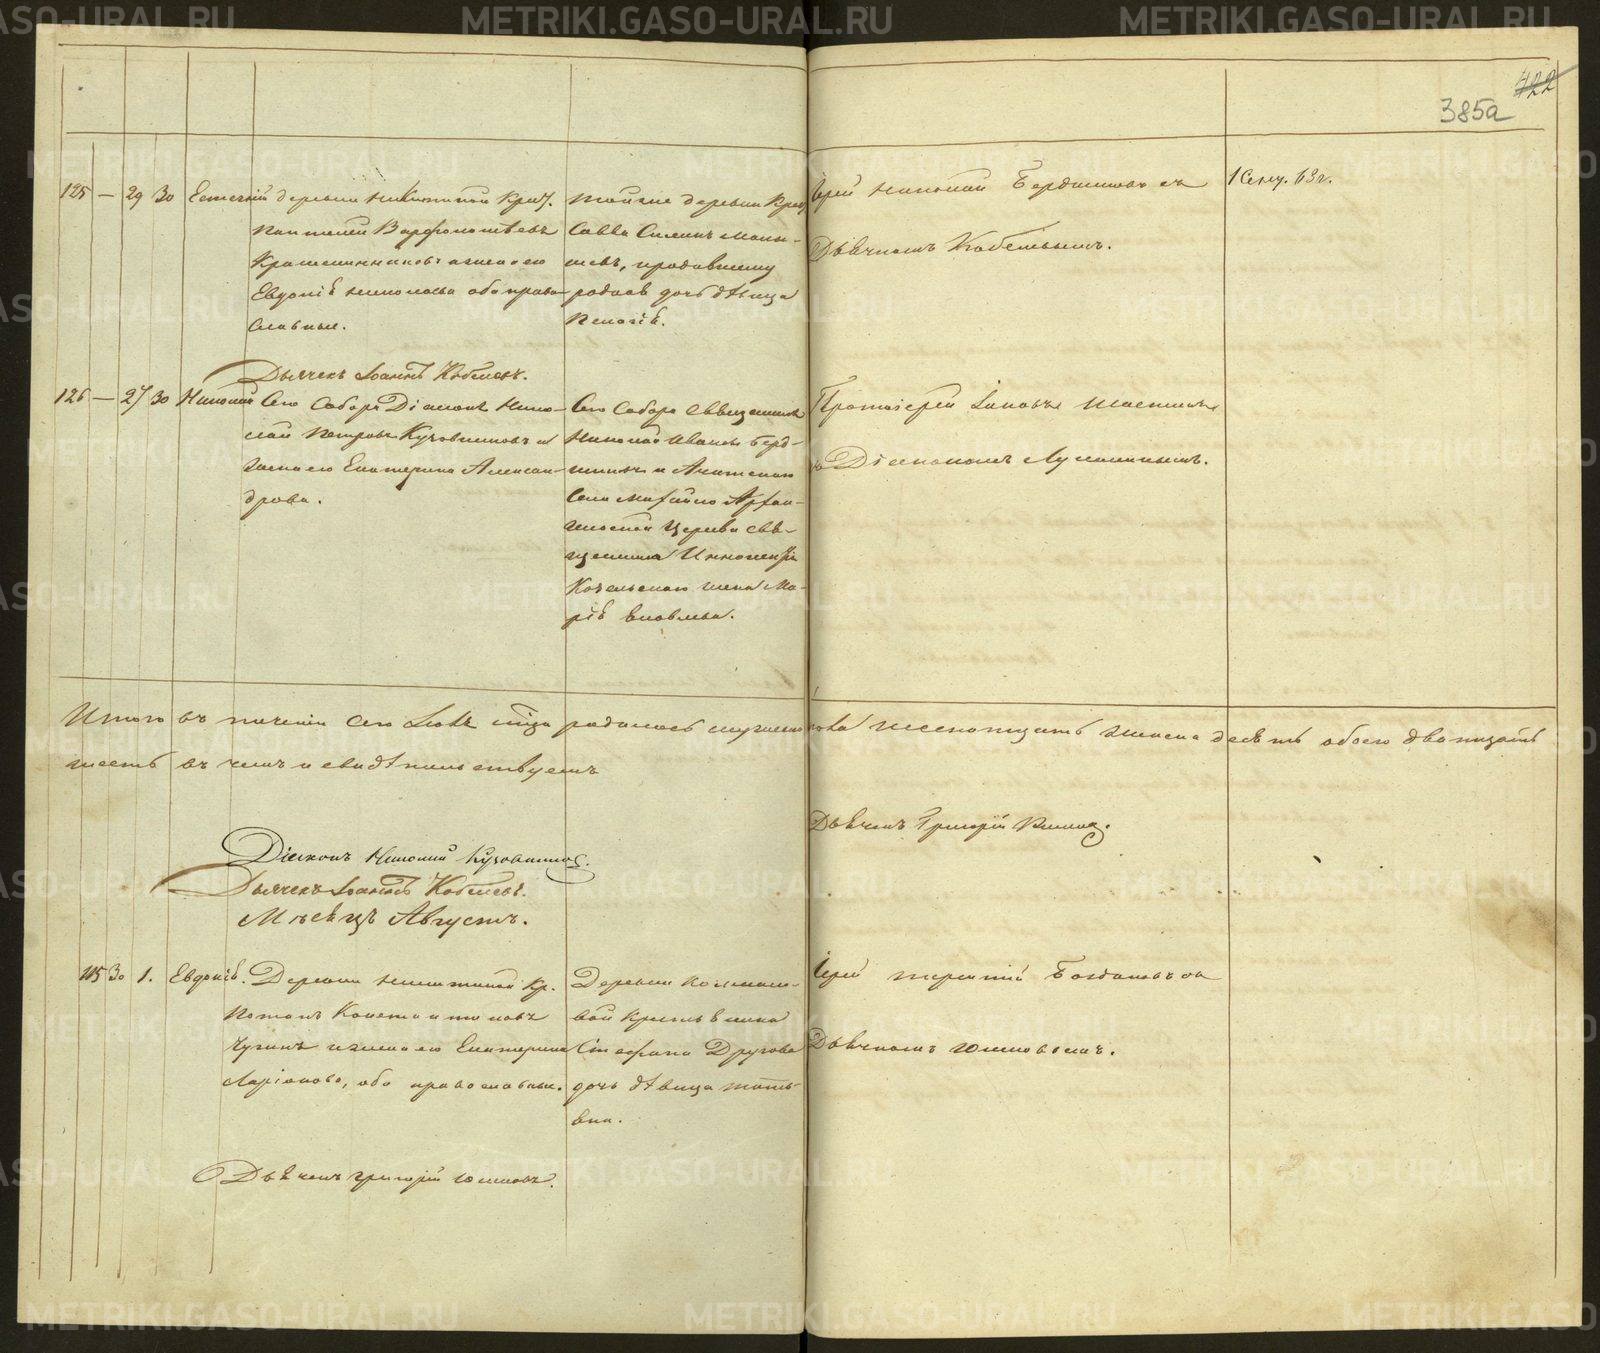 422
385а
125 — 29 30 Евгеній деревни Никитиной Крест.
Пантелей Варфоломѣевъ
Крашенинниковъ и жена его
Евдокія Николаева оба право
славные.
тойже деревни Крест
Савва Силинъ
родовъ дочь дѣвица
Пелагія.
Іерей Николай Бердниковъ съ
Дьячкомъ Кобелевымъ.
1 Сент. 63 г.
Дьячекъ Іоаннъ Кобелевъ.
126 — 27 30 Николай Сего Собора Діаконъ Нико-
лай Петровъ Кузовниковъ и
жена его Екатерина Алексан-
дрова.
Сего Собора Священникъ
Николай Ивановъ Берд-
никовъ и Ачитскаго
Села Михайло Архан-
гельской Церкви Свя-
щенника Иннокентія
жена Ма-
рія Яковлева.
Протоіерей Іаковъ
съ Діакономъ
Итого въ теченіи сего Іюля мѣсяца родилось мужеска пола шеснатцать женска десять обоего двацать
шесть въ чемъ и свидѣтельствуемъ
Дьячекъ Григорій
Діаконъ Николай Кузовниковъ.
Дьячекъ Іоаннъ Кобелевъ.
Мѣсяцъ Августъ.
115 30 1. Евдокія. Деревни Никитиной Кр.
Потапъ Константиновъ
Чугинъ и жена его Екатерина
Ларіонова, оба православные.
Деревни
вой Крестьянина
Стефана Другова
дочь дѣвица Тать-
яна.
Іерей Терентій Богдановъ съ
Дьячкомъ Юшковымъ.
Дьячекъ Григорій Юшковъ.
METRIKI.GASO-URAL.RU